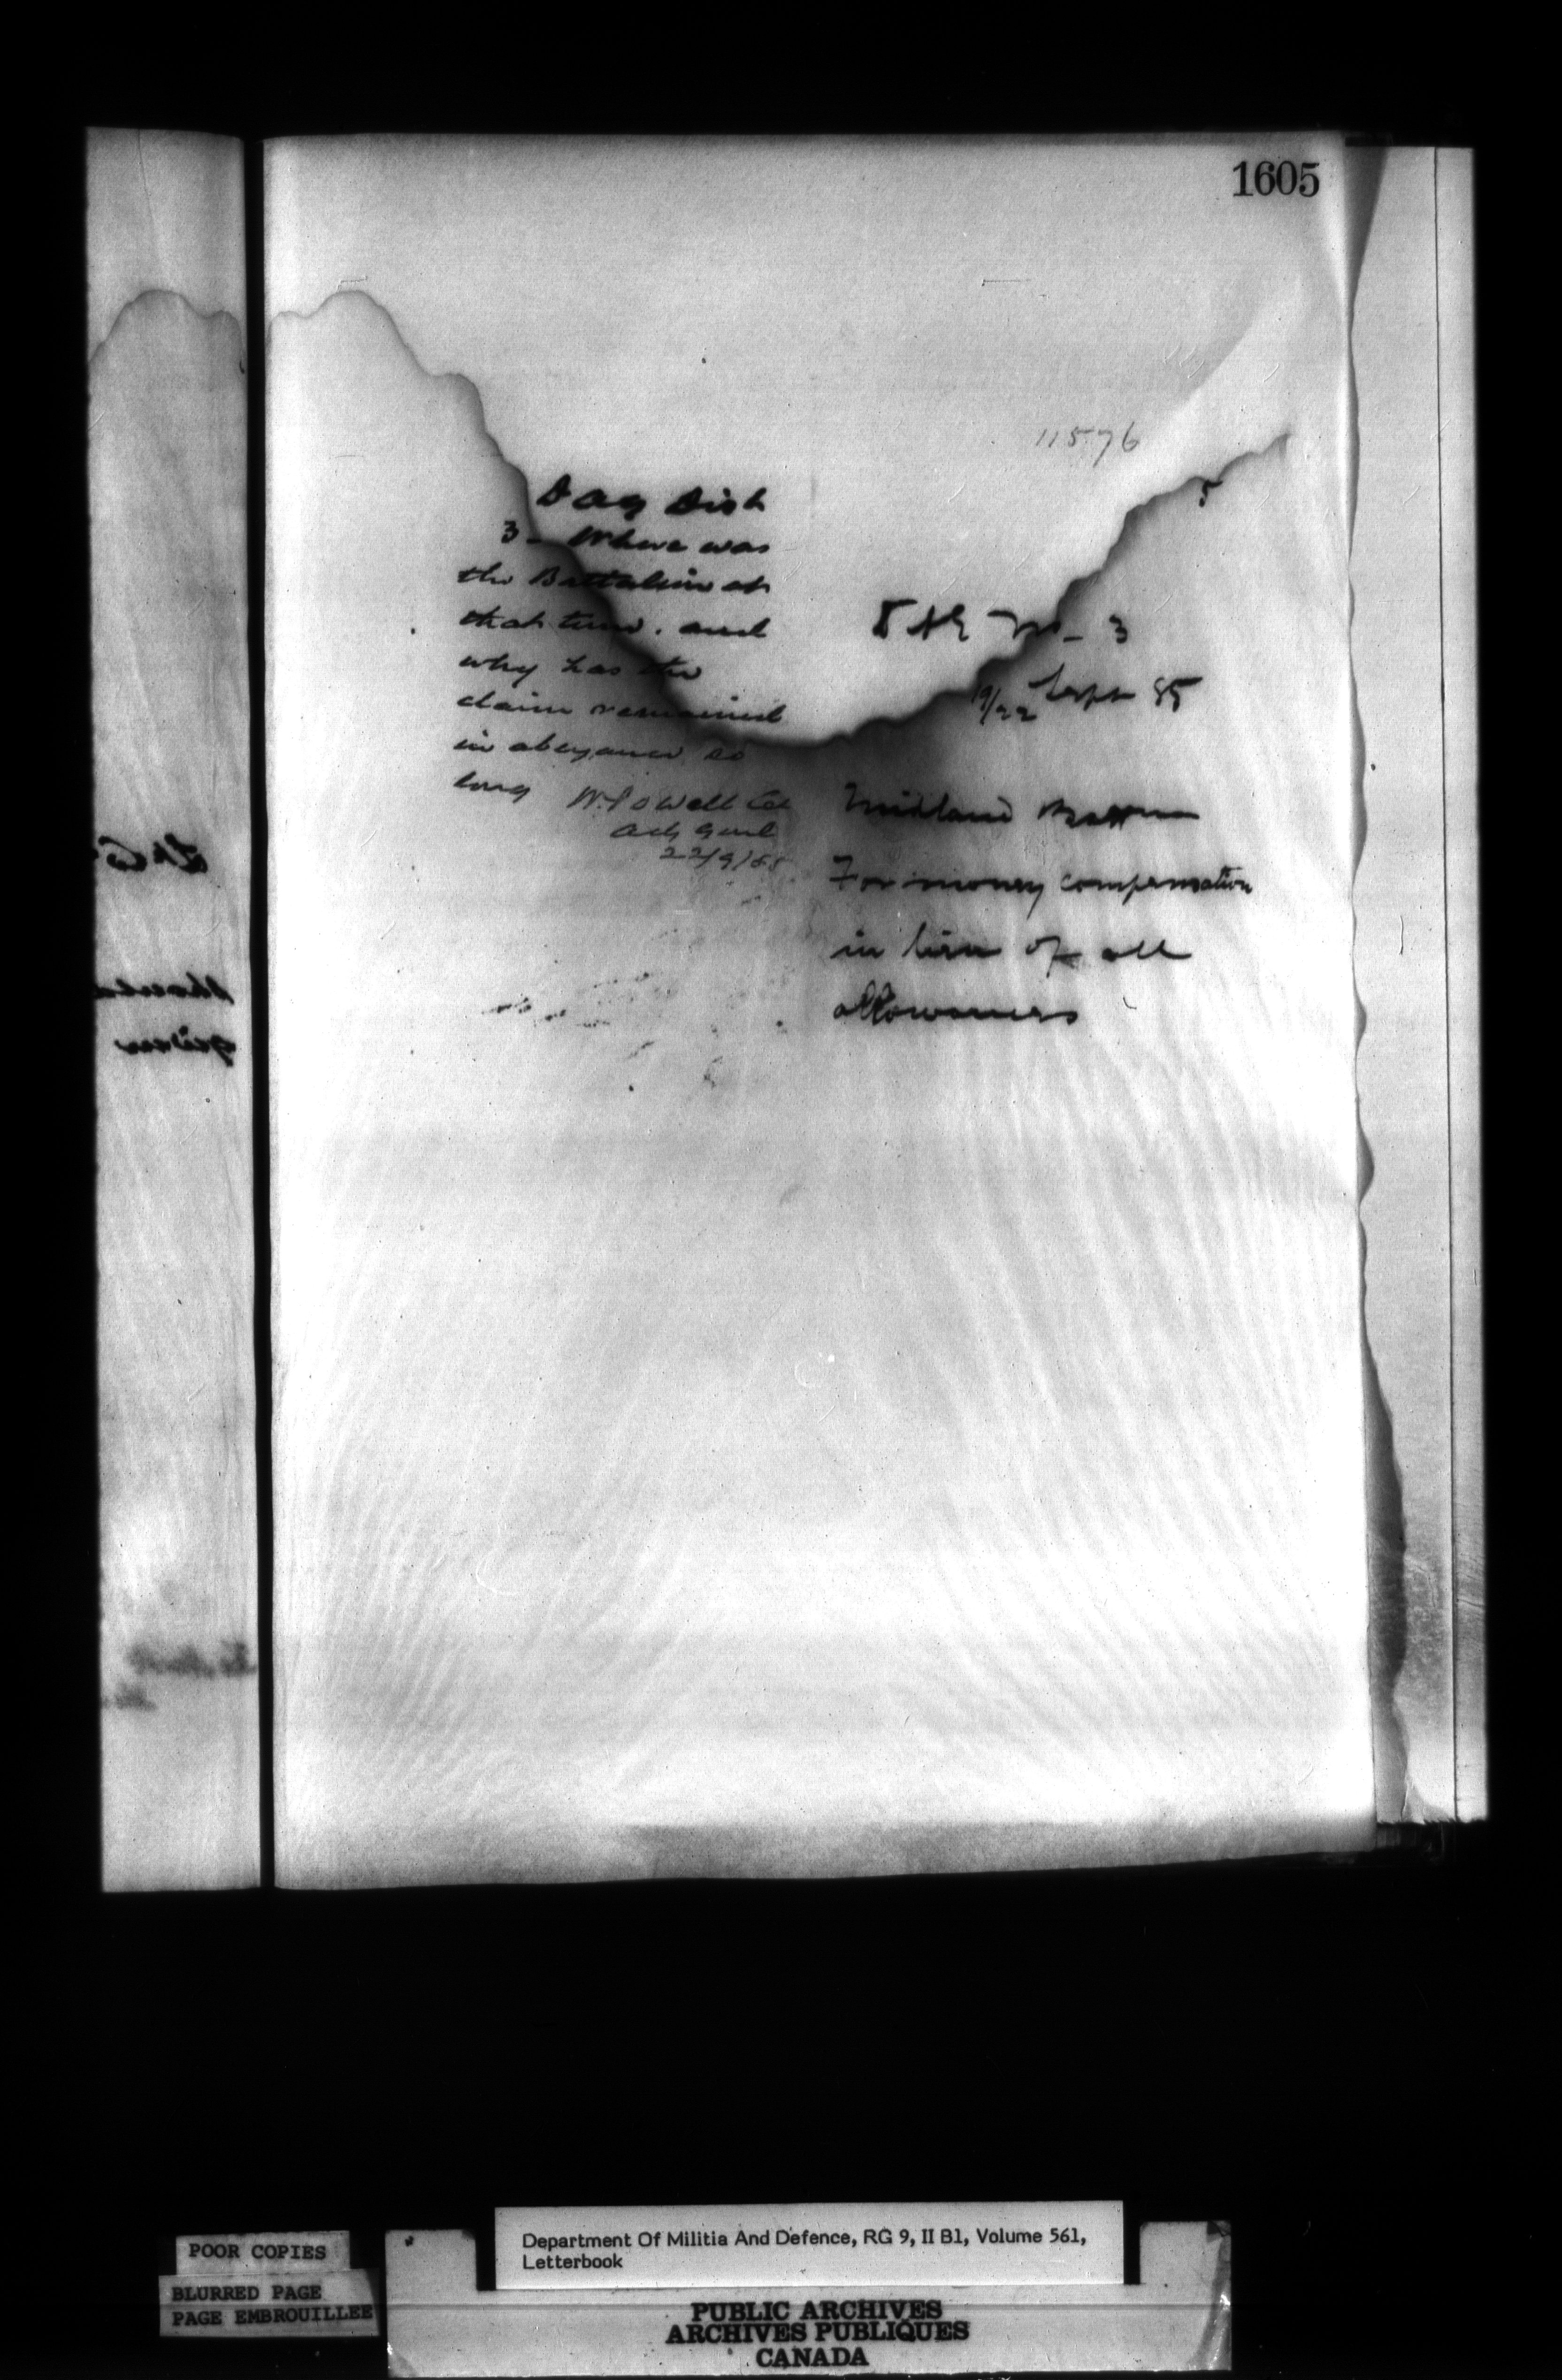 1605
11576
5
D A G Dist
3 - Where was
the Battalion at
that time. and
why has the
claim remained
in abeyance so
long W. Powell Col
Adj Genl
22/9/85
3
19/22 Sept 85
Midland Battn
For money compensation
in lieu of all
allowances
POOR COPIES
BLURRED PAGE
PAGE EMBROUILLEE
Department Of Militia And Defence, RG 9, II B1, Volume 561,
Letterbook
PUBLIC ARCHIVES
ARCHIVES PUBLIQUES
CANADA